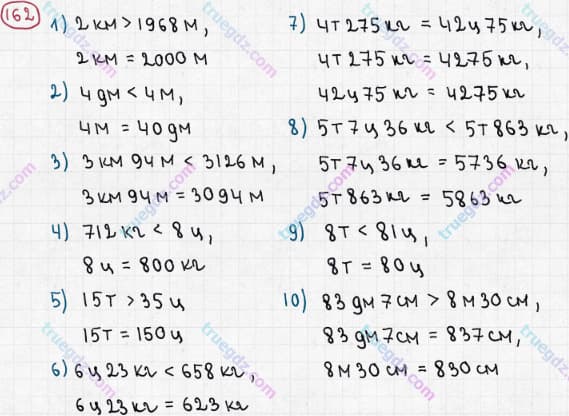 162
1) 2 км > 1968 м,
2 км = 2000 м
2) 4 дм < 4 м,
4 м = 40 дм
3) 3 км 94 м < 3126 м,
3 км 94 м = 3094 м
4) 712 кг < 8 ц,
8 ц = 800 кг
5) 15 т > 35 ц
15 т = 150 ц
6) 6 ц 23 кг < 658 кг,
6 ц 23 кг = 623 кг
7) 4 т 275 кг = 42 ц 75 кг,
4 т 275 кг = 4275 кг,
42 ц 75 кг = 4275 кг
8) 5 т 7 ц 36 кг < 5 т 863 кг,
5 т 7 ц 36 кг = 5736 кг,
5 т 863 кг = 5863 кг
9) 8 т < 81 ц,
8 т = 80 ц
10) 83 дм 7 см > 8 м 30 см,
83 дм 7 см = 837 см,
8 м 30 см = 830 см
truegdz.com